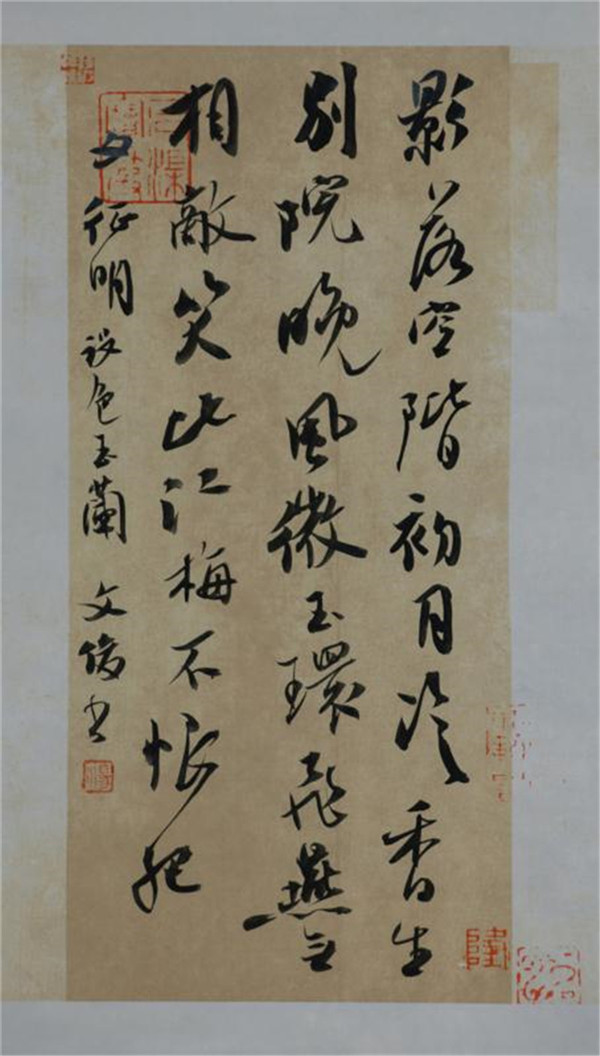 影落空階初月冷香生
別院晚風微玉環飛燕元
相敵笑比江梅不恨肥
文征明 设色玉蘭 文俊书